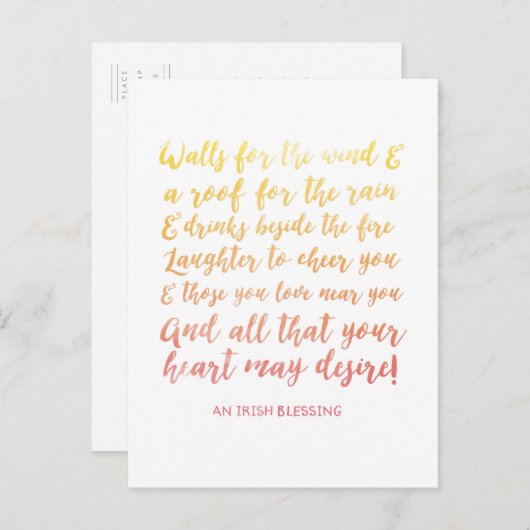 PLACE
Walls for the wind &
a roof for the rain
& drinks beside the fire
Laughter to cheer you
& those you love near you
And all that your
heart may desire!
AN IRISH BLESSING